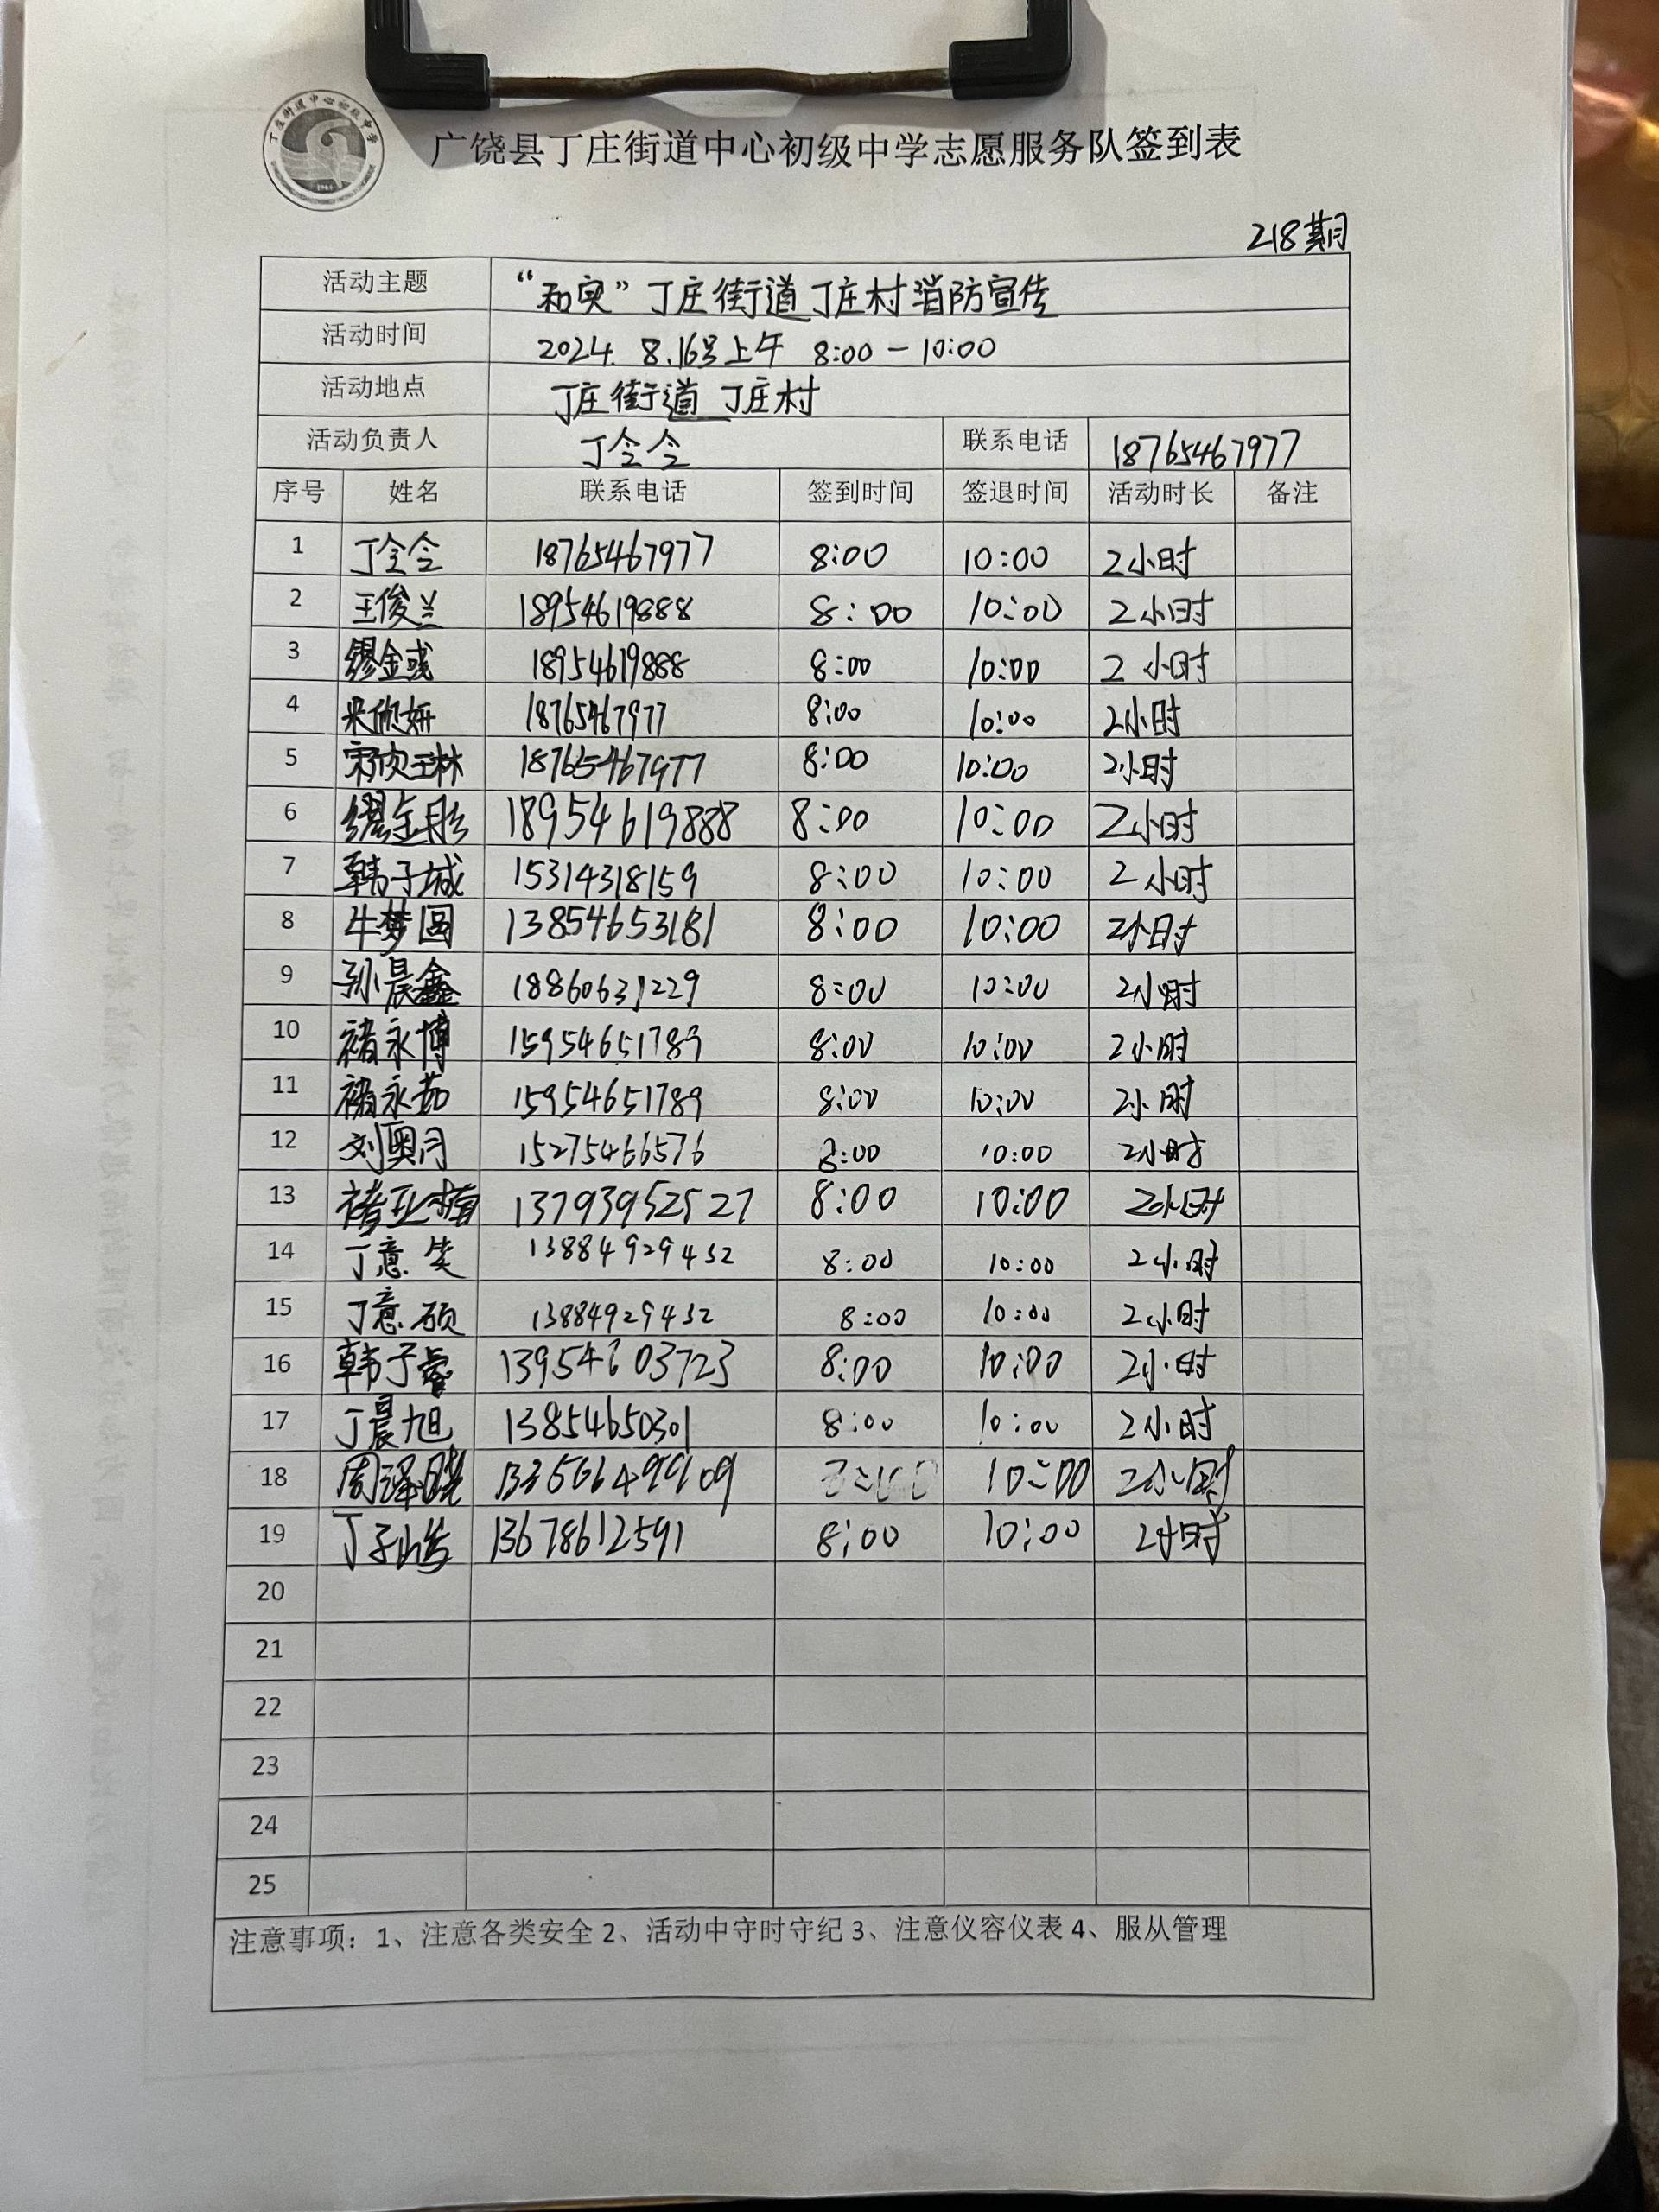 丁庄街道中心初级中学
广饶县丁庄街道中心初级中学志愿服务队签到表
218期
活动主题 “和奕”丁庄街道丁庄村消防宣传
活动时间 2024. 8.16号上午 8:00-10:00
活动地点 丁庄街道 丁庄村
活动负责人 丁令令 联系电话 18765467977
序号 姓名 联系电话 签到时间 签退时间 活动时长 备注
1 丁令令 18765467977 8:00 10:00 2小时
2 王俊兰 18954619888 8:00 10:00 2小时
3 缪金彧 18954619888 8:00 10:00 2小时
4 米欣妍 18765467977 8:00 10:00 2小时
5 宋欣琳 18765467977 8:00 10:00 2小时
6 缪金彤 18954619888 8:00 10:00 2小时
7 韩子城 15314318159 8:00 10:00 2小时
8 牛梦圆 13854653181 8:00 10:00 2小时
9 孙晨鑫 18860631229 8:00 10:00 2小时
10 褚永博 15954651789 8:00 10:00 2小时
11 褚永茹 15954651789 8:00 10:00 2小时
12 刘奥月 15275466576 8:00 10:00 2小时
13 褚亚楠 13793952527 8:00 10:00 2小时
14 丁意笑 13884929432 8:00 10:00 2小时
15 丁意硕 13884929432 8:00 10:00 2小时
16 韩子睿 13954603723 8:00 10:00 2小时
17 丁晨旭 13854650301 8:00 10:00 2小时
18 周泽晓 10:00 2小时
19 丁子 13678612591 8:00 10:00 2小时
20
21
22
23
24
25
注意事项：1、注意各类安全 2、活动中守时守纪 3、注意仪容仪表 4、服从管理